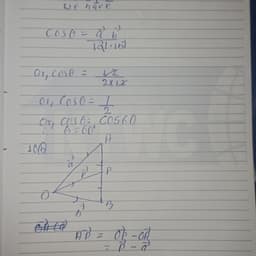 we have
Cosθ = a⃗ b⃗ / |a⃗|·|b⃗|
or, cosθ =
or, Cosθ = 1/2
or, cosθ = cos60
A
P
B
O
a⃗
p⃗
b⃗
AP⃗ = OP⃗ - OA⃗
= p⃗ - a⃗